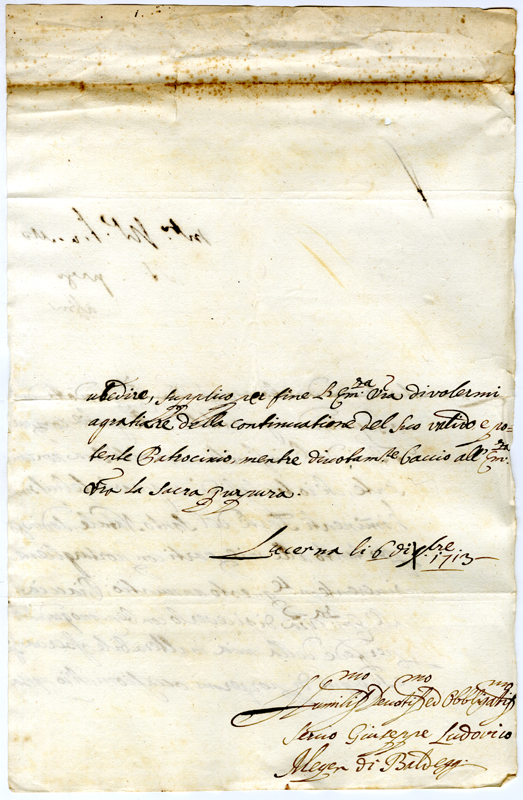 ubedire, supplico per fine l'Em.za Vrã di volermi
agratiare della continuatione del suo valido e po-
tente Patrocinio, mentre divotam.te baccio all' Em.za
Vrã la Sacra purpura.
Lucerna li 6 di Xbre 1713
Humiliss.mo Devotiss.mo ed Obbligatiss.mo
Servo Giuseppe Ludovico
Meyer di Baldegg.